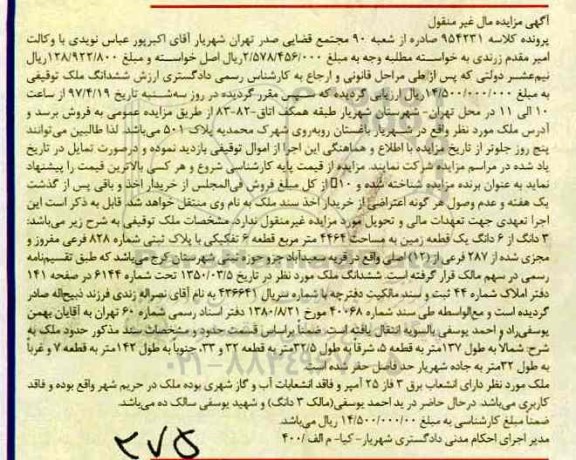 آگهی مزایده مال غیر منقول
پرونده کلاسه ۹۵۴۲۳۱ صادره از شعبه ۹۰ مجتمع قضایی صدر تهران شهریار آقای اکبرپور عباس نویدی با وکالت
امیر مقدم زرندی به خواسته مطلبه وجه به مبلغ ۲/۵۷۸/۴۵۶/۰۰۰ریال اصل خواسته و مبلغ ۱۲۸/۹۲۲/۸۰۰ریال
نیم‌عشر دولتی که پس از طی مراحل قانونی و ارجاع به کارشناس رسمی دادگستری ارزش ششدانگ ملک توقیفی
به مبلغ ۱۴/۵۰۰/۰۰۰/۰۰۰ریال ارزیابی گردیده که سپس مقرر گردیده در روز سه‌شنبه تاریخ ۹۷/۴/۱۹ از ساعت
۱۰ الی ۱۱ در محل تهران- شهرستان شهریار طبقه همکف اتاق-۸۲-۸۳ از طریق مزایده عمومی به فروش برسد و
آدرس ملک مورد نظر واقع در شهریار باغستان روبه‌روی شهرک محمدیه پلاک ۵۰۱ می‌باشد. لذا طالبین می‌توانند
پنج روز جلوتر از تاریخ مزایده با اطلاع و هماهنگی این اجرا از اموال توقیفی بازدید نموده و درصورت تمایل در تاریخ
یاد شده در مراسم مزایده شرکت نمایند. مزایده از قیمت پایه کارشناسی شروع و هر کسی بالاترین قیمت را پیشنهاد
نماید به عنوان برنده مزایده شناخته شده و ۱۰ از کل مبلغ فروش فی‌المجلس از خریدار اخذ و باقی پس از گذشت
یک هفته و عدم وصول هر گونه اعتراضی از خریدار اخذ سند ملک به نام وی منتقل خواهد شد. قابل به ذکر است این
اجرا تعهدی جهت تعهدات مالی و تحویل مورد مزایده غیرمنقول ندارد. مشخصات ملک توقیفی به شرح زیر می‌باشد:
۳ دانگ از ۶ دانگ یک قطعه زمین به مساحت ۴۴۶۴ متر مربع قطعه ۶ تفکیکی با پلاک ثبتی شماره ۸۲۸ فرعی مفروز و
مجزی شده از ۲۸۷ فرعی از (۱۲) اصلی واقع در قریه سعیدآباد جزو حوزه ثبتی شهرستان کرج می‌باشد که طبق تقسیم‌نامه
رسمی در سهم مالک قرار گرفته است. ششدانگ ملک مورد نظر در تاریخ ۱۳۵۰/۰۳/۵ تحت شماره ۶۱۴۴ در صفحه ۱۴۱
دفتر املاک شماره ۴۴ ثبت و سند مالکیت دفترچه با شماره سریال ۴۳۶۶۴۱ به نام آقای نصراله زندی فرزند ذبیح‌اله صادر
گردیده است و مع‌الواسطه طی سند شماره ۴۰۰۶۸ مورخ ۱۳۸۰/۸/۲۱ دفتر اسناد رسمی شماره ۶۰ تهران به آقایان بهمن
یوسفی‌راد و احمد یوسفی بالسویه انتقال یافته است. ضمناً براساس قسمت حدود و مشخصات سند مذکور حدود ملک به
شرح: شمالاً به طول ۱۳۷متر به قطعه ۵، شرقاً به طول ۳۲/۵متر به قطعه ۳۲ و ۳۳، جنوباً به طول ۱۴۲متر به قطعه ۷ و غرباً
به طول ۳۲متر به جاده شهریار حد فاصل حفر شده است.
ملک مورد نظر دارای انشعاب برق ۳ فاز ۲۵ آمپر و فاقد انشعابات آب و گاز شهری بوده ملک در حریم شهر واقع بوده و فاقد
کاربری می‌باشد. درحال حاضر در ید احمد یوسفی(مالک ۳ دانگ) و شهید یوسفی سالک ده می‌باشد.
ضمناً مبلغ کارشناسی به مبلغ ۱۴/۵۰۰/۰۰۰/۰۰ ریال می‌باشد.
مدیر اجرای احکام مدنی دادگستری شهریار- کیا- م الف /۴۰۰
۲۷۵